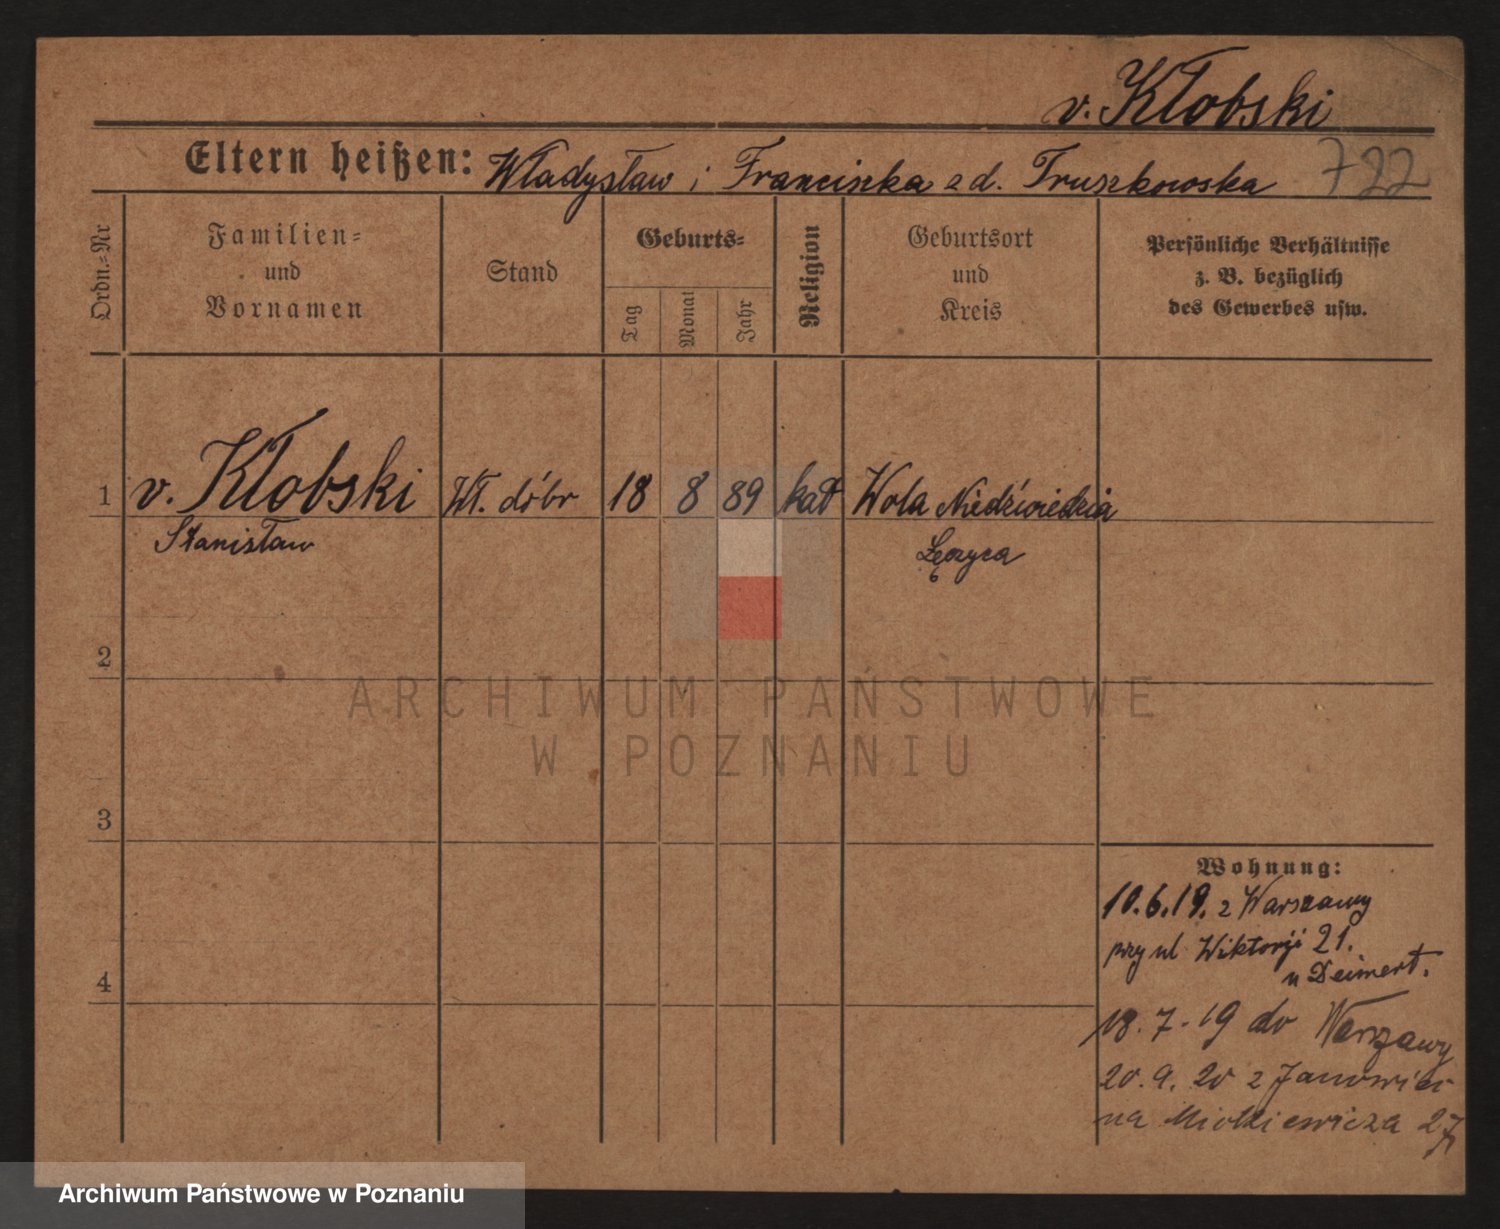 v. Kłobski
Eltern heißen: Władysław i Franciszka z d. Truszkowska 722
Ordn.-Nr
Familien-
und
Vornamen
Stand
Geburts-
Tag
Monat
Jahr
Religion
Geburtsort
und
Kreis
Persönliche Verhältnisse
z. B. bezüglich
des Gewerbes usw.
1 v. Kłobski Wł. dóbr 18 8 89 kat Wola Niedźwiedzia
Stanisław Łęczyca
2
ARCHIWUM PAŃSTWOWE
W POZNANIU
3
Wohnung:
10.6.19. z Warszawy
przy ul Wiktorji 21.
u Deimert.
4
18.7.19 do Warszawy
20.9.20 z Janowiec
na Mickiewicza 27
Archiwum Państwowe w Poznaniu